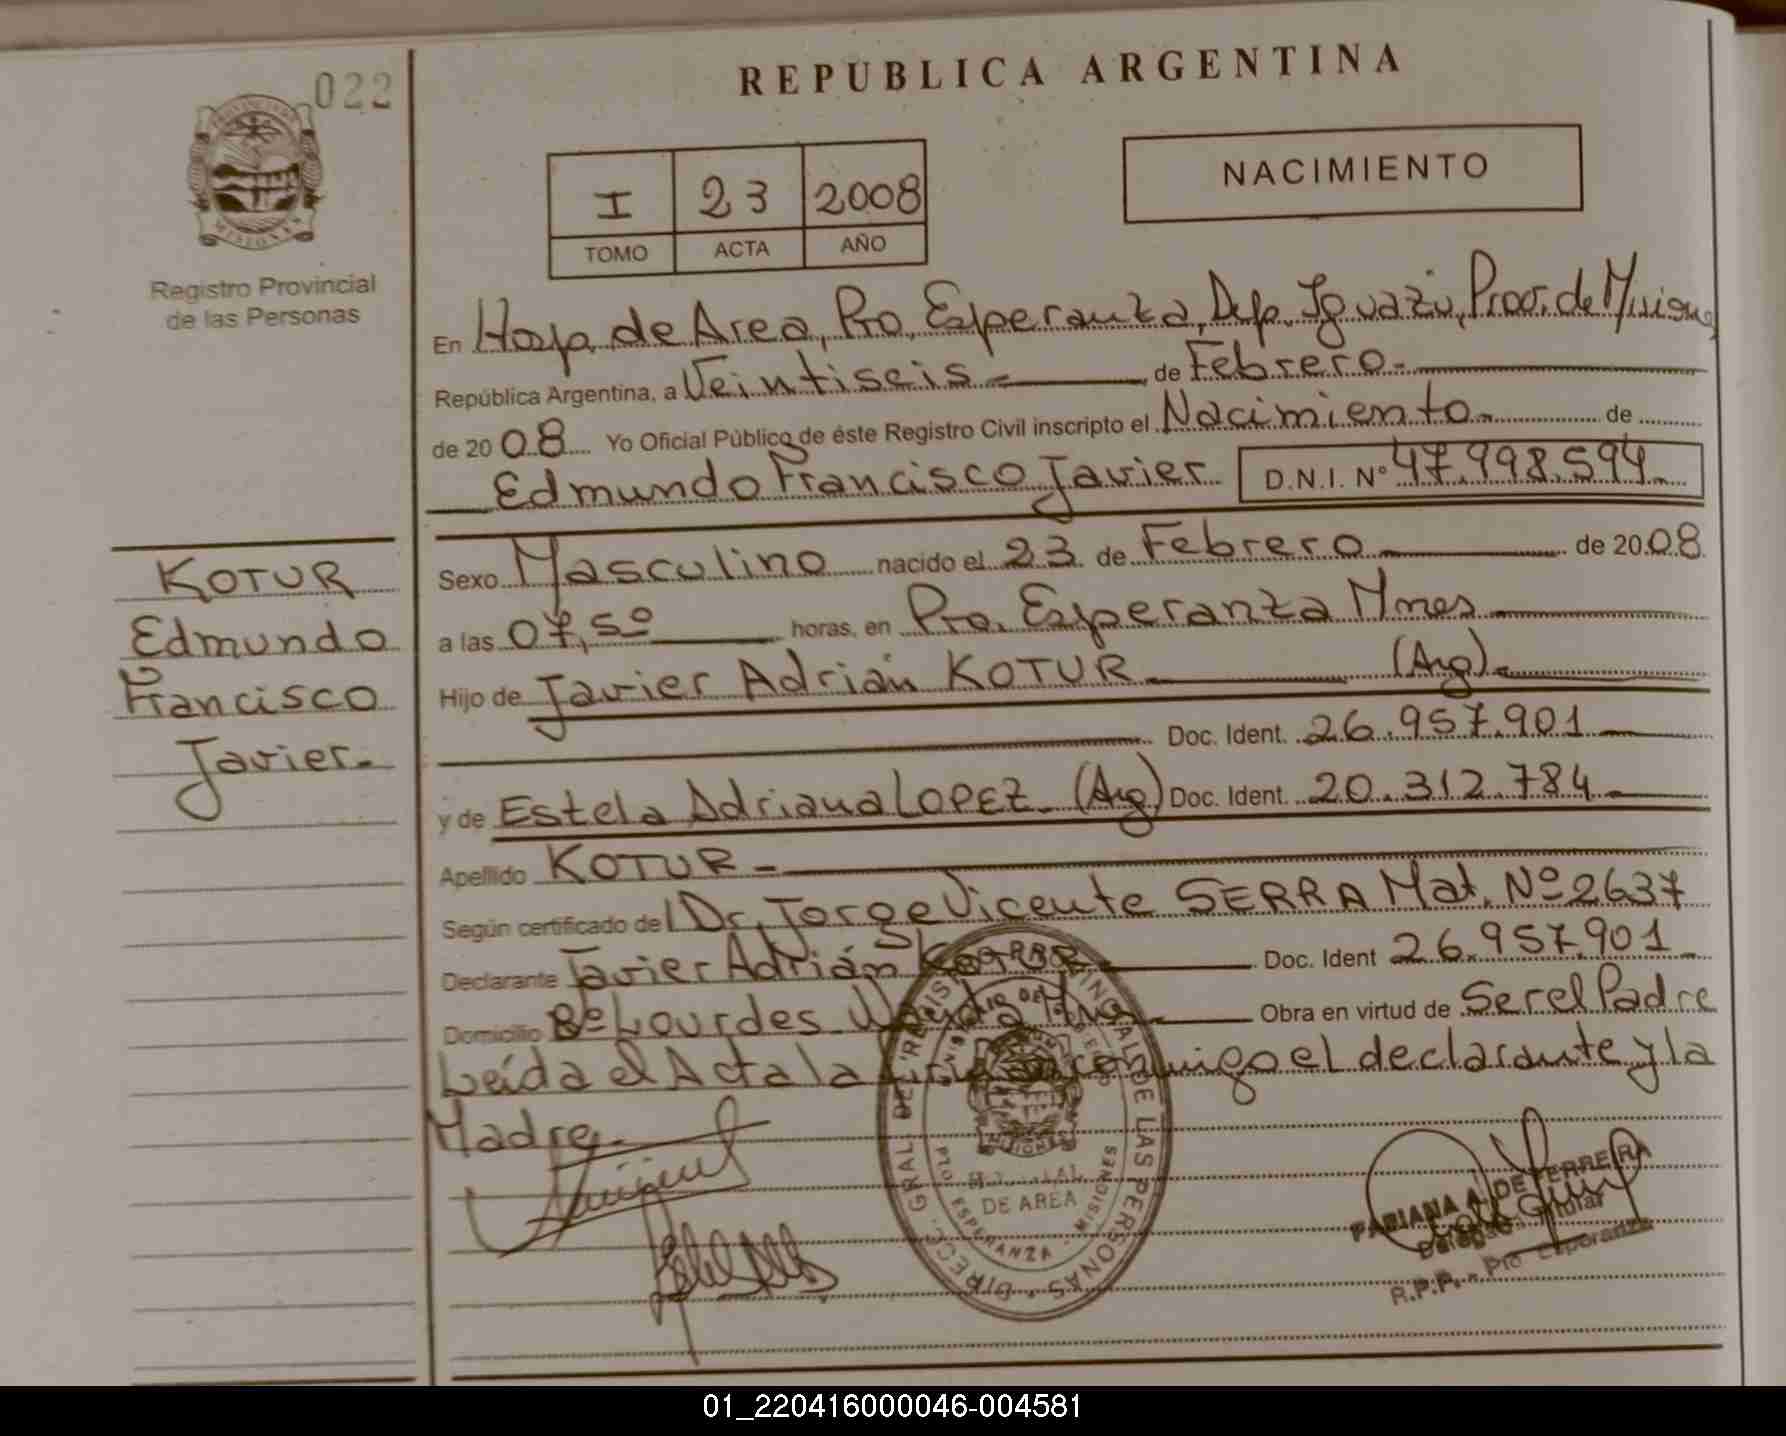 022
REPUBLICA ARGENTINA
PROVINCIA DE
MISIONES
Registro Provincial
de las Personas
I 23 2008
TOMO ACTA AÑO
NACIMIENTO
En Hosp. de Area, Pto. Esperanza, Dep. Iguazú, Prov. de Misiones
República Argentina, a Veintiseis de Febrero.
de 2008 Yo Oficial Público de éste Registro Civil inscripto el Nacimiento de
Edmundo Francisco Javier D.N.I. Nº 47.998.594
Sexo Masculino nacido el 23 de Febrero de 2008
a las 07,50 horas, en Pto. Esperanza Mnes
Hijo de Javier Adrián KOTUR (Arg).
Doc. Ident. 26.957.901
y de Estela Adriana LOPEZ. (Arg) Doc. Ident. 20.312.784
Apellido KOTUR
Según certificado del Dr. Jorge Vicente SERRA Mat. Nº 2637
Declarante Javier Adrián KOTUR Doc. Ident 26.957.901
Domicilio Bº Lourdes Wanda Mnes Obra en virtud de Ser el Padre
Leída el Acta la firman conmigo el declarante y la
Madre.
KOTUR
Edmundo
Francisco
Javier.
DIRECC. GRAL. DEL REGISTRO PROVINCIAL DE LAS PERSONAS
HOSPITAL
DE AREA
PTO. ESPERANZA - MISIONES
FABIANA A. DE FERREIRA
Delegada Titular
R.P.P. - Pto Esperanza
01_220416000046-004581